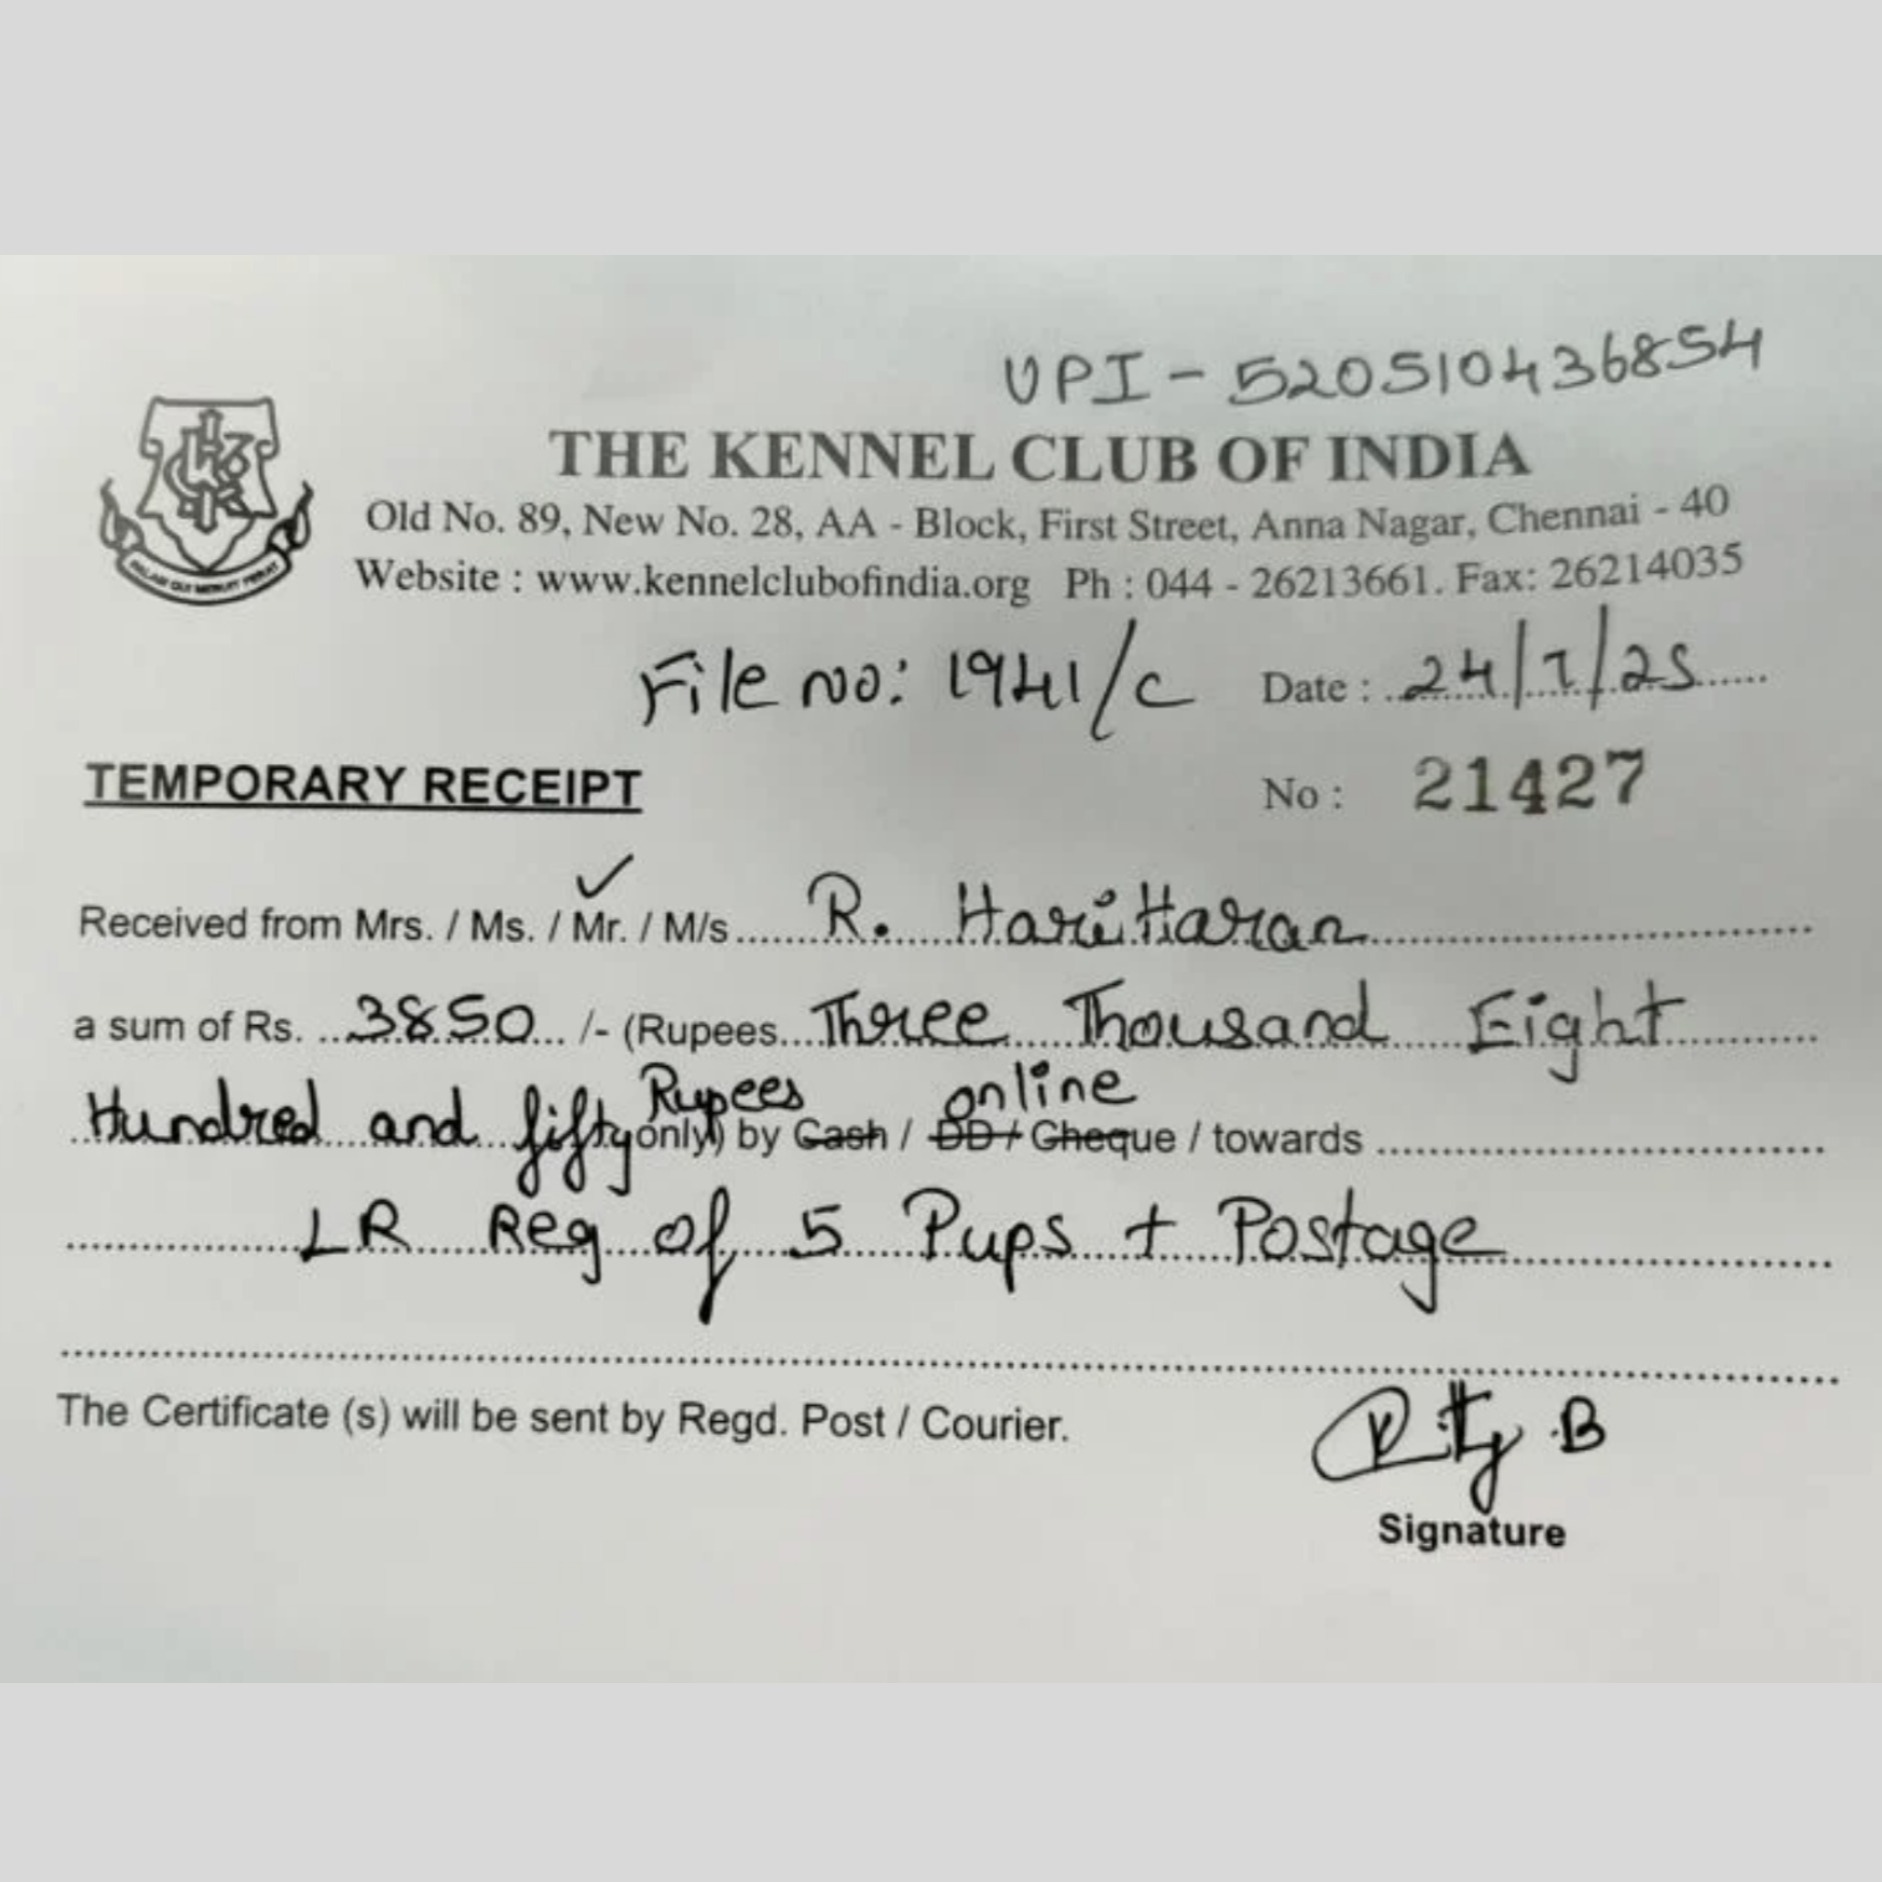 UPI - 520510436854
THE KENNEL CLUB OF INDIA
Old No. 89, New No. 28, AA - Block, First Street, Anna Nagar, Chennai - 40
Website : www.kennelclubofindia.org Ph : 044 - 26213661. Fax: 26214035
File no: 1941/c Date : 24/7/25
TEMPORARY RECEIPT No : 21427
Received from Mrs. / Ms. / Mr. / M/s R. HariHaran
a sum of Rs. 3850 /- (Rupees Three Thousand Eight
Hundred and fifty Rupees only) by Cash / DD / Cheque / online towards
LR Reg of 5 Pups + Postage
The Certificate (s) will be sent by Regd. Post / Courier.
B
Signature